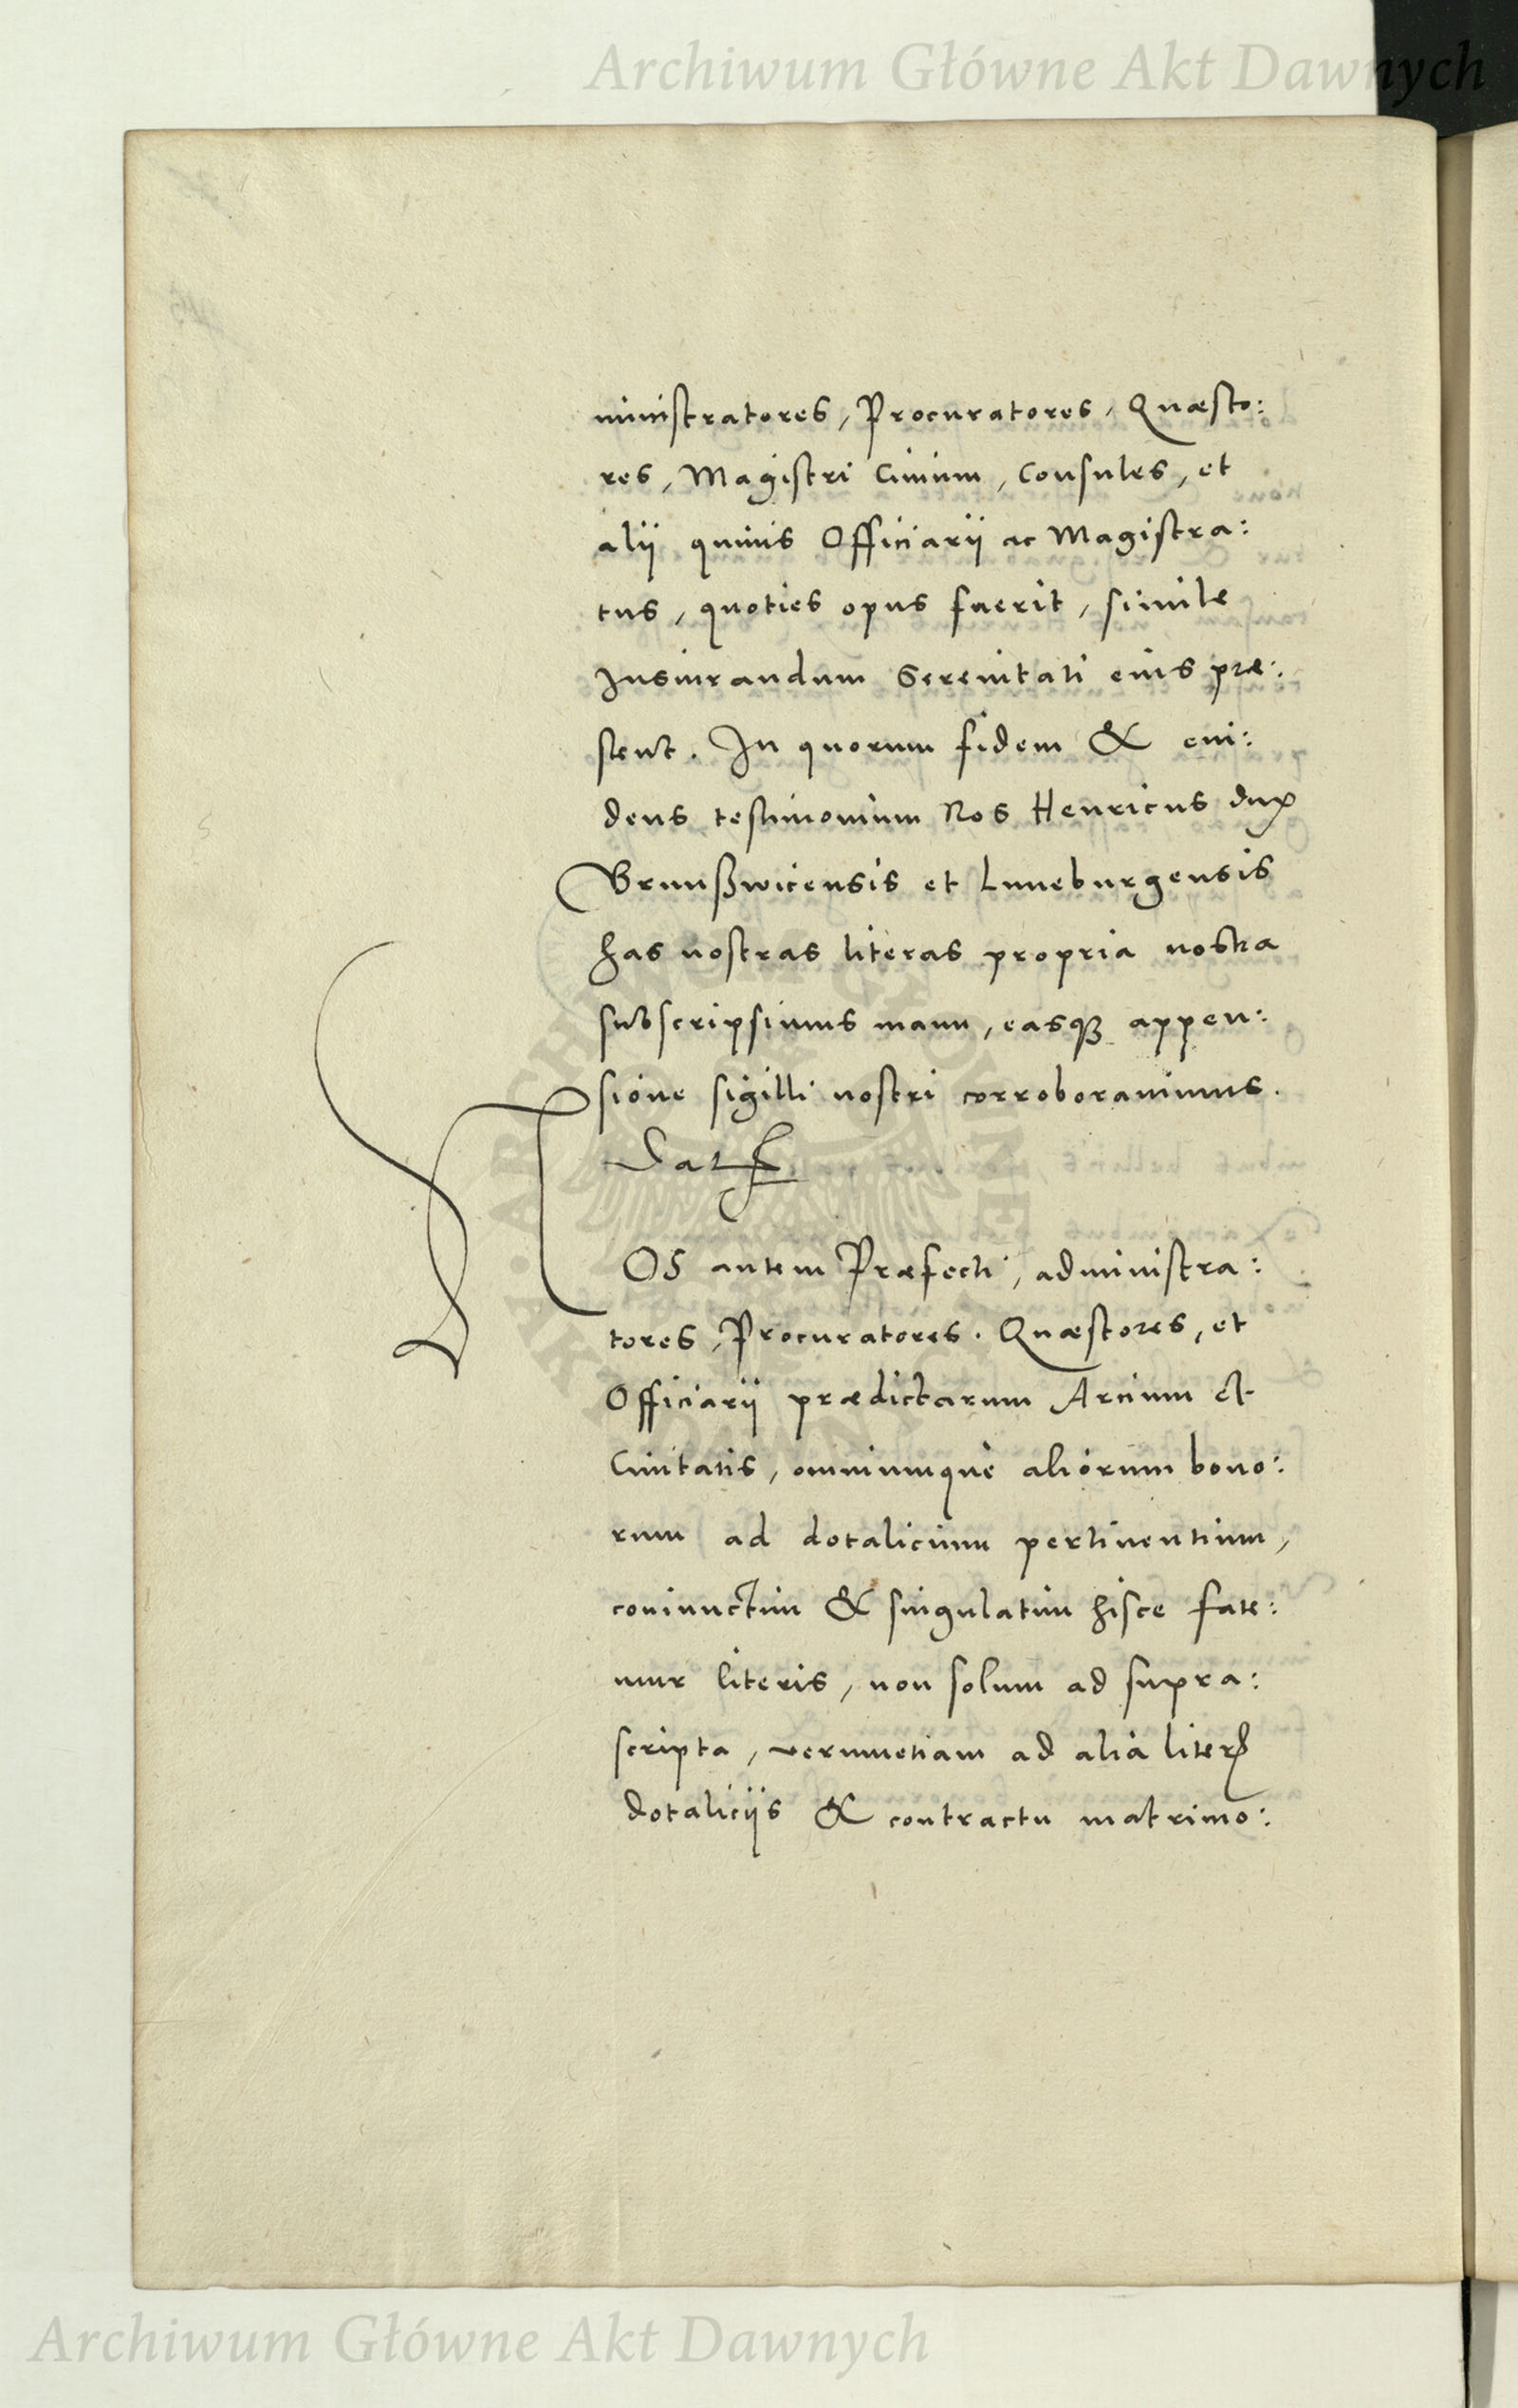 Archiwum Główne Akt Dawnych
ministratores, Procuratores, Quæsto:
res, Magistri Ciuium, Consules, et
alij quiuis Officiarij ac Magistra:
tus, quoties opus fuerit, simile
Iusiurandum Serenitati eius præ:
stent. In quorum fidem & eui:
dens testimonium Nos Henricus dux
Brunßwicensis et Luneburgensis
has nostras literas propria nostra
subscripsimus manu, easqȝ appen:
sione sigilli nostri corroborauimus.
Dat
NOS autem Præfecti, administra:
tores, Procuratores. Quæstores, et
Officiarij prædictarum Arcium et
Ciuitatis, omniumque aliorum bono:
rum ad dotalicium pertinentium,
coniunctim & singulatim hisce fate:
mur literis, non solum ad supra:
scripta, verumetiam ad alia literꝭ
dotalicijs & contractu matrimo:
Archiwum Główne Akt Dawnych